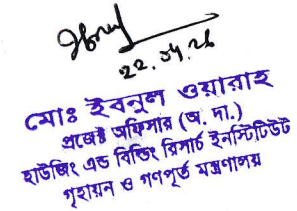 ২২.০৭.২৬
মোঃ ইবনুল ওয়ারাহ
প্রজেক্ট অফিসার (অ. দা.)
হাউজিং এন্ড বিল্ডিং রিসার্চ ইনস্টিটিউট
গৃহায়ন ও গণপূর্ত মন্ত্রণালয়